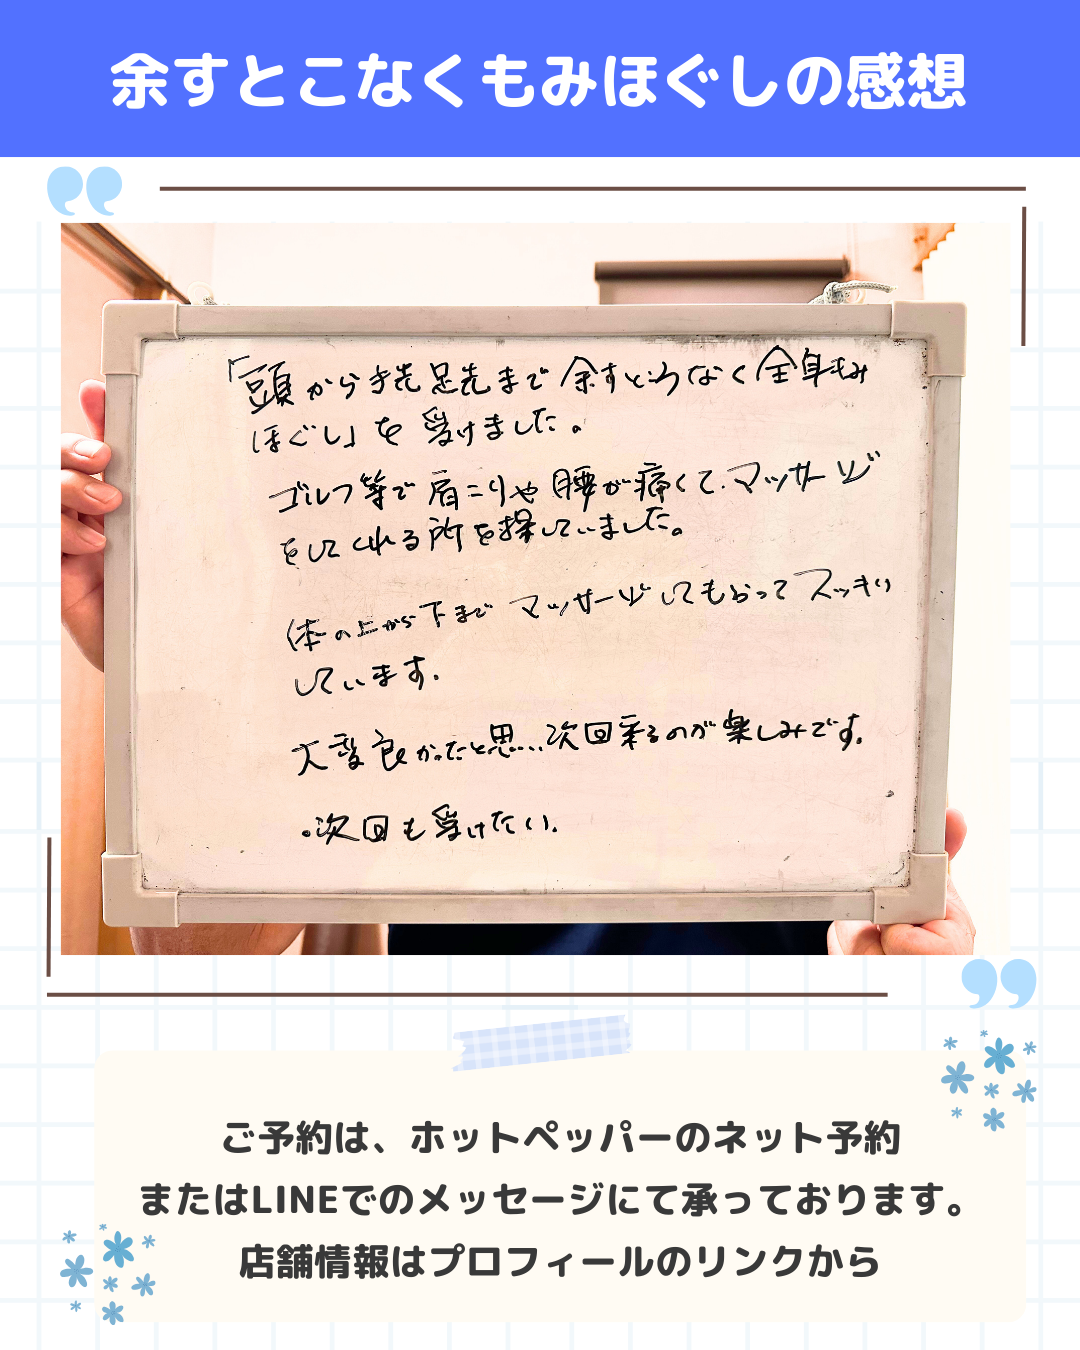 余すとこなくもみほぐしの感想
「頭から手先足先まで余すところなく全身もみ
ほぐし」を受けました。
ゴルフ等で肩こりや腰が痛くて、マッサージ
をしてくれる所を探していました。
体の上から下までマッサージしてもらってスッキリ
しています。
大変良かったと思い、次回来るのが楽しみです。
・次回も受けたい。
ご予約は、ホットペッパーのネット予約
またはLINEでのメッセージにて承っております。
店舗情報はプロフィールのリンクから